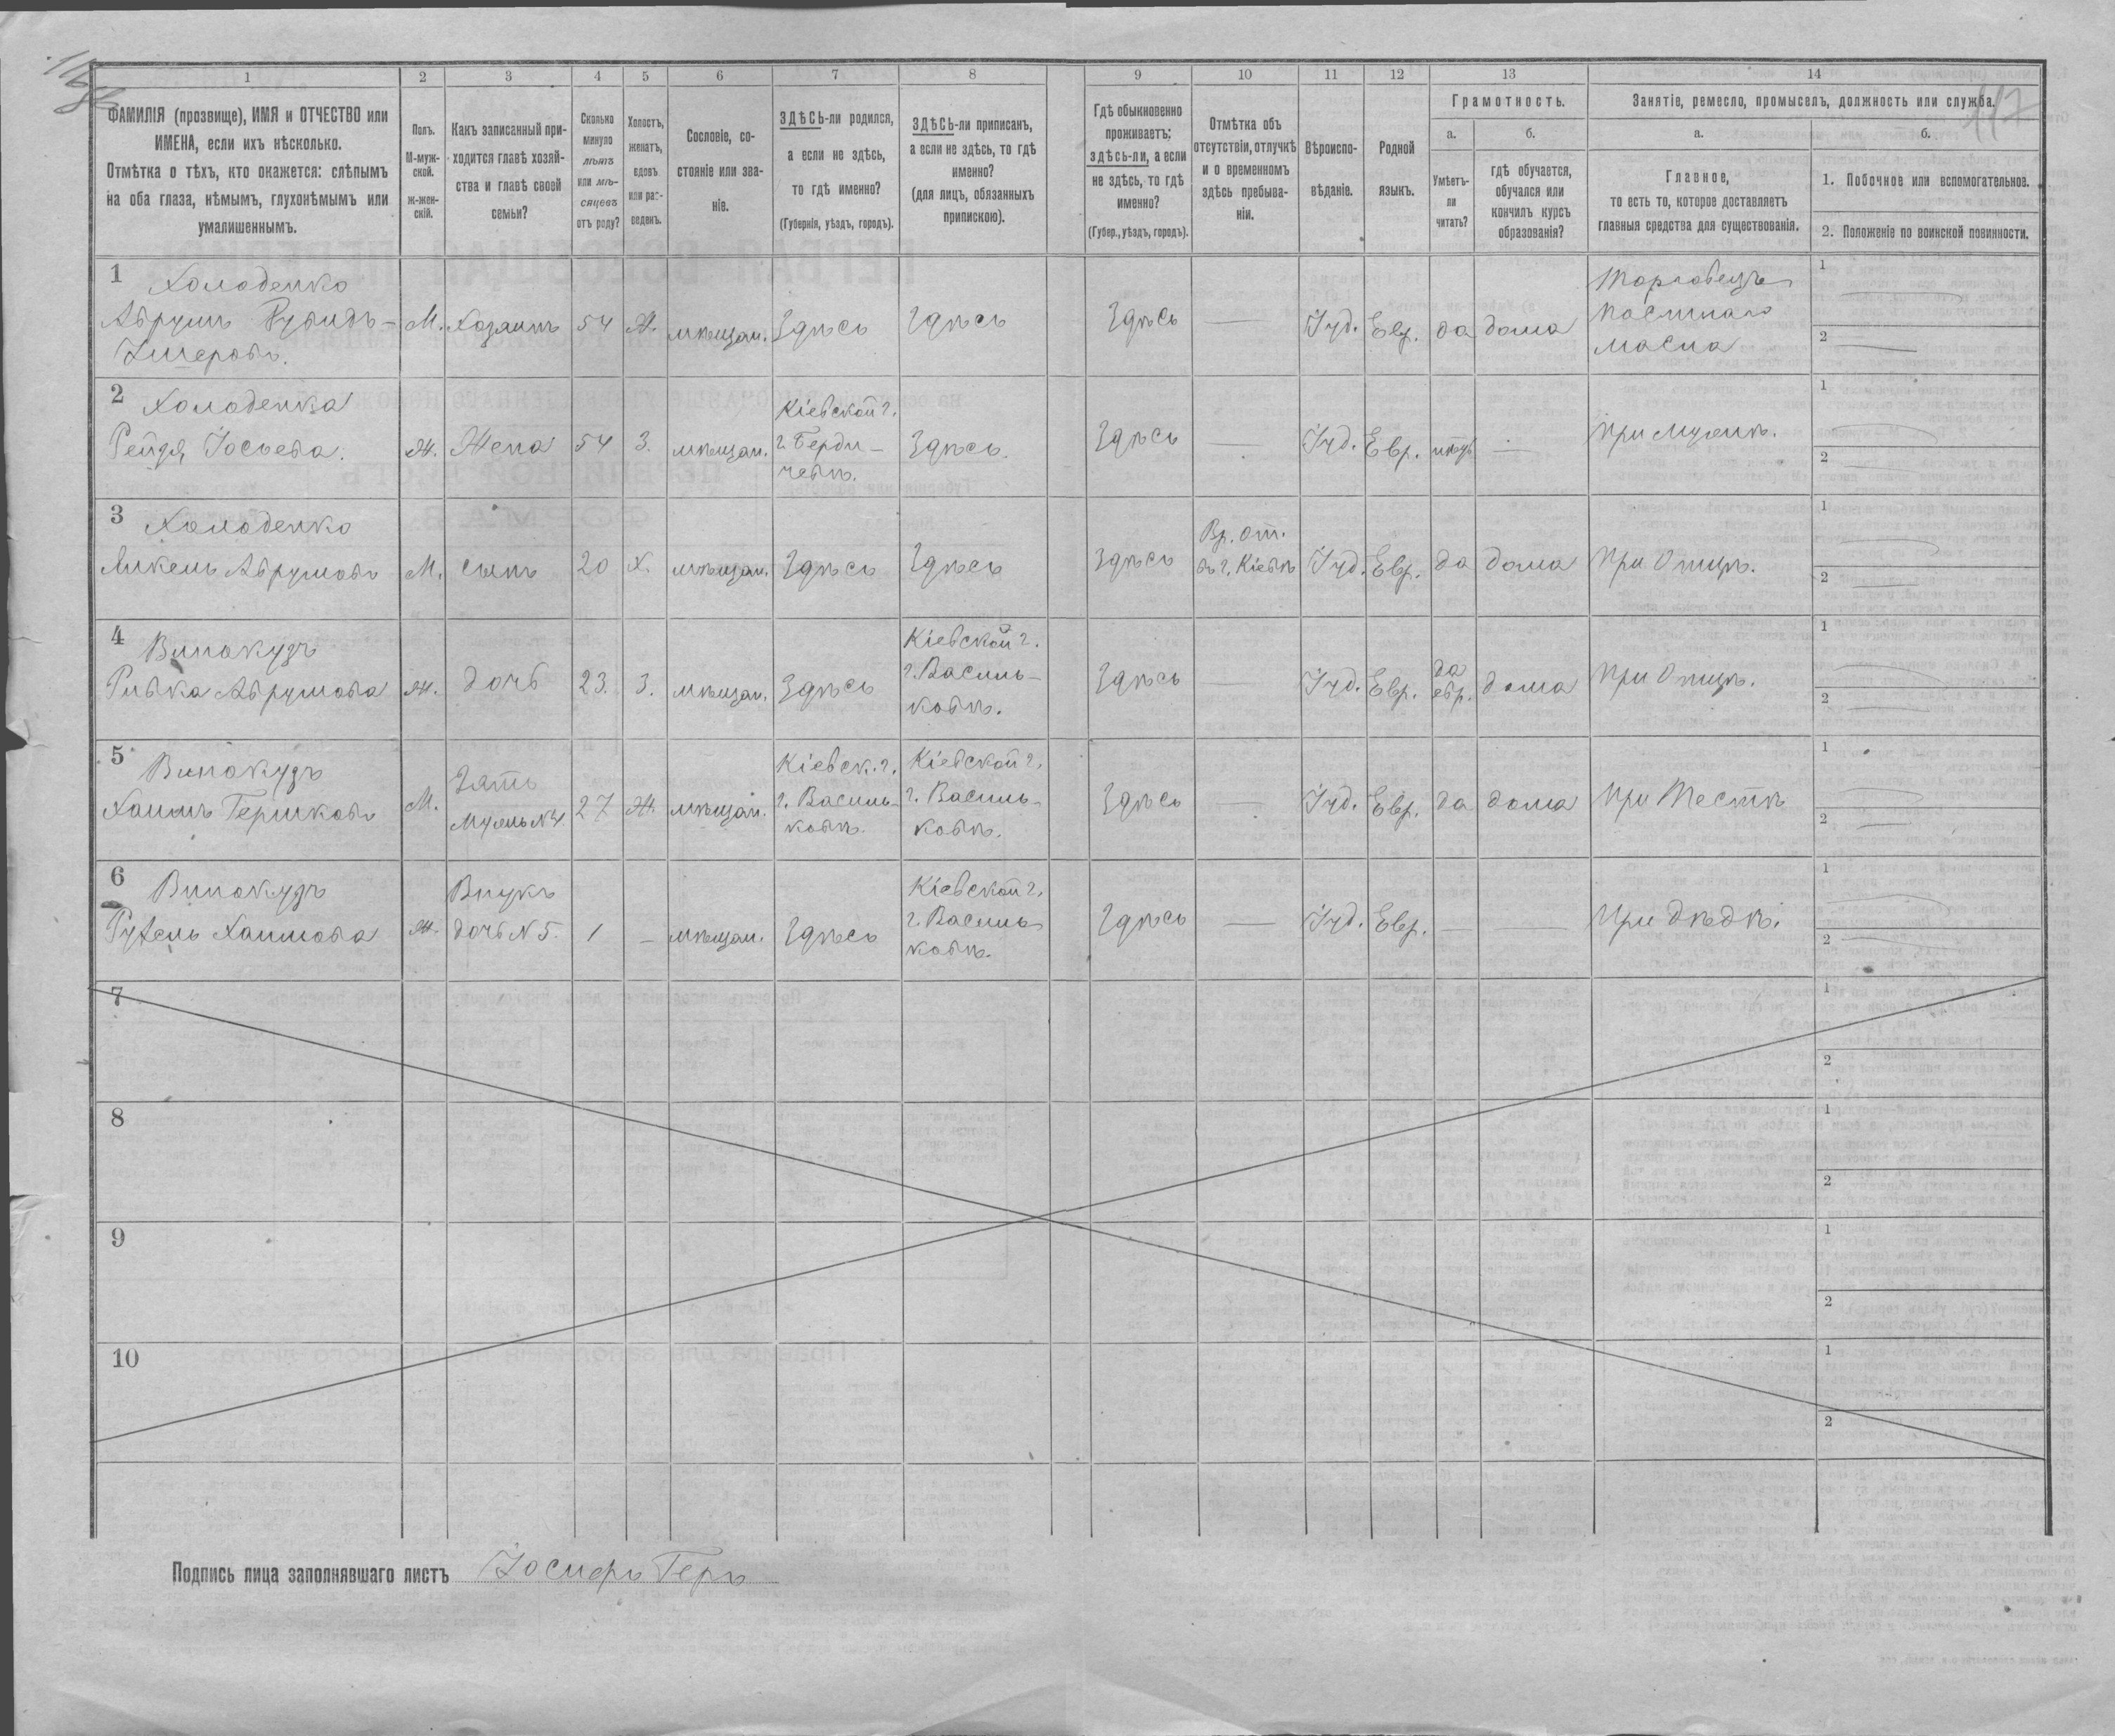 1 2 3 4 5 6 7 8 9 10 11 12 13 14
ФАМИЛІЯ (прозвище), ИМЯ и ОТЧЕСТВО или
ИМЕНА, если ихъ нѣсколько.
Отмѣтка о тѣхъ, кто окажется: слѣпымъ
на оба глаза, нѣмымъ, глухонѣмымъ или
умалишеннымъ.
Полъ.
М-муж-
ской.
ж-жен-
скій.
Какъ записанный при-
ходится главѣ хозяй-
ства и главѣ своей
семьи?
Сколько
минуло
лѣтъ
или мѣ-
сяцевъ
отъ роду?
Холостъ,
женатъ,
вдовъ
или раз-
веденъ.
Сословіе, со-
стояніе или зва-
ніе.
ЗДѢСЬ-ли родился,
а если не здѣсь,
то гдѣ именно?
(Губернія, уѣздъ, городъ).
ЗДѢСЬ-ли приписанъ,
а если не здѣсь, то гдѣ
именно?
(для лицъ, обязанныхъ
припискою).
Гдѣ обыкновенно
проживаетъ:
здѣсь-ли, а если
не здѣсь, то гдѣ
именно?
(Губер., уѣздъ, городъ).
Отмѣтка объ
отсутствіи, отлучкѣ
и о временномъ
здѣсь пребыва-
ніи.
Вѣроиспо-
вѣданіе.
Родной
языкъ.
Грамотность.
а.
Умѣетъ-
ли
читать?
б.
гдѣ обучается,
обучался или
кончилъ курсъ
образованія?
Занятіе, ремесло, промыселъ, должность или служба.
117
а.
Главное,
то есть то, которое доставляетъ
главныя средства для существованія.
б.
1. Побочное или вспомогательное.
2. Положеніе по воинской повинности.
1
Холоденко
Аврумъ Рувидъ-
Шмеровъ.
М. Хозяинъ 54 Ж. мѣщан. Здѣсь Здѣсь Здѣсь — Іуд. Евр. да дома
Торговецъ
постнаго
масла
1
2
2
Холоденко
Рейзя Іосьева.
Ж. Жена 54 З. мѣщан.
Кіевской г.
г. Берди-
чевѣ.
Здѣсь. Здѣсь — Іуд. Евр. нѣтъ — При мужѣ.
1
2
3
Холоденко
Янкель Аврумовъ
М. сынъ 20 Х. мѣщан. Здѣсь Здѣсь Здѣсь
Вр. от.
въ г. Кіевѣ
Іуд. Евр. да дома При Отцѣ.
1
2
4
Винокуръ
Ривка Аврумова
Ж. дочь 23. З. мѣщан. Здѣсь
Кіевской г.
г. Василь-
ковѣ.
Здѣсь — Іуд. Евр.
да
евр.
дома При Отцѣ.
1
2
5
Винокуръ
Хаимъ Гершковъ
М.
Зять
мужъ №4.
27 Ж. мѣщан.
Кіевск. г.
г. Василь-
ковѣ.
Кіевской г.
г. Василь-
ковѣ.
Здѣсь — Іуд. Евр. да дома При Тестѣ
1
2
6
Винокуръ
Рухель Хаимова
Ж.
Внукъ
дочь №5.
1 — мѣщан. Здѣсь
Кіевской г.
г. Василь-
ковѣ.
Здѣсь — Іуд. Евр. — — При дѣдѣ.
1
2
7
1
2
8
1
2
9
1
2
10
1
2
Подпись лица заполнявшаго листъ Іосифъ Геръ